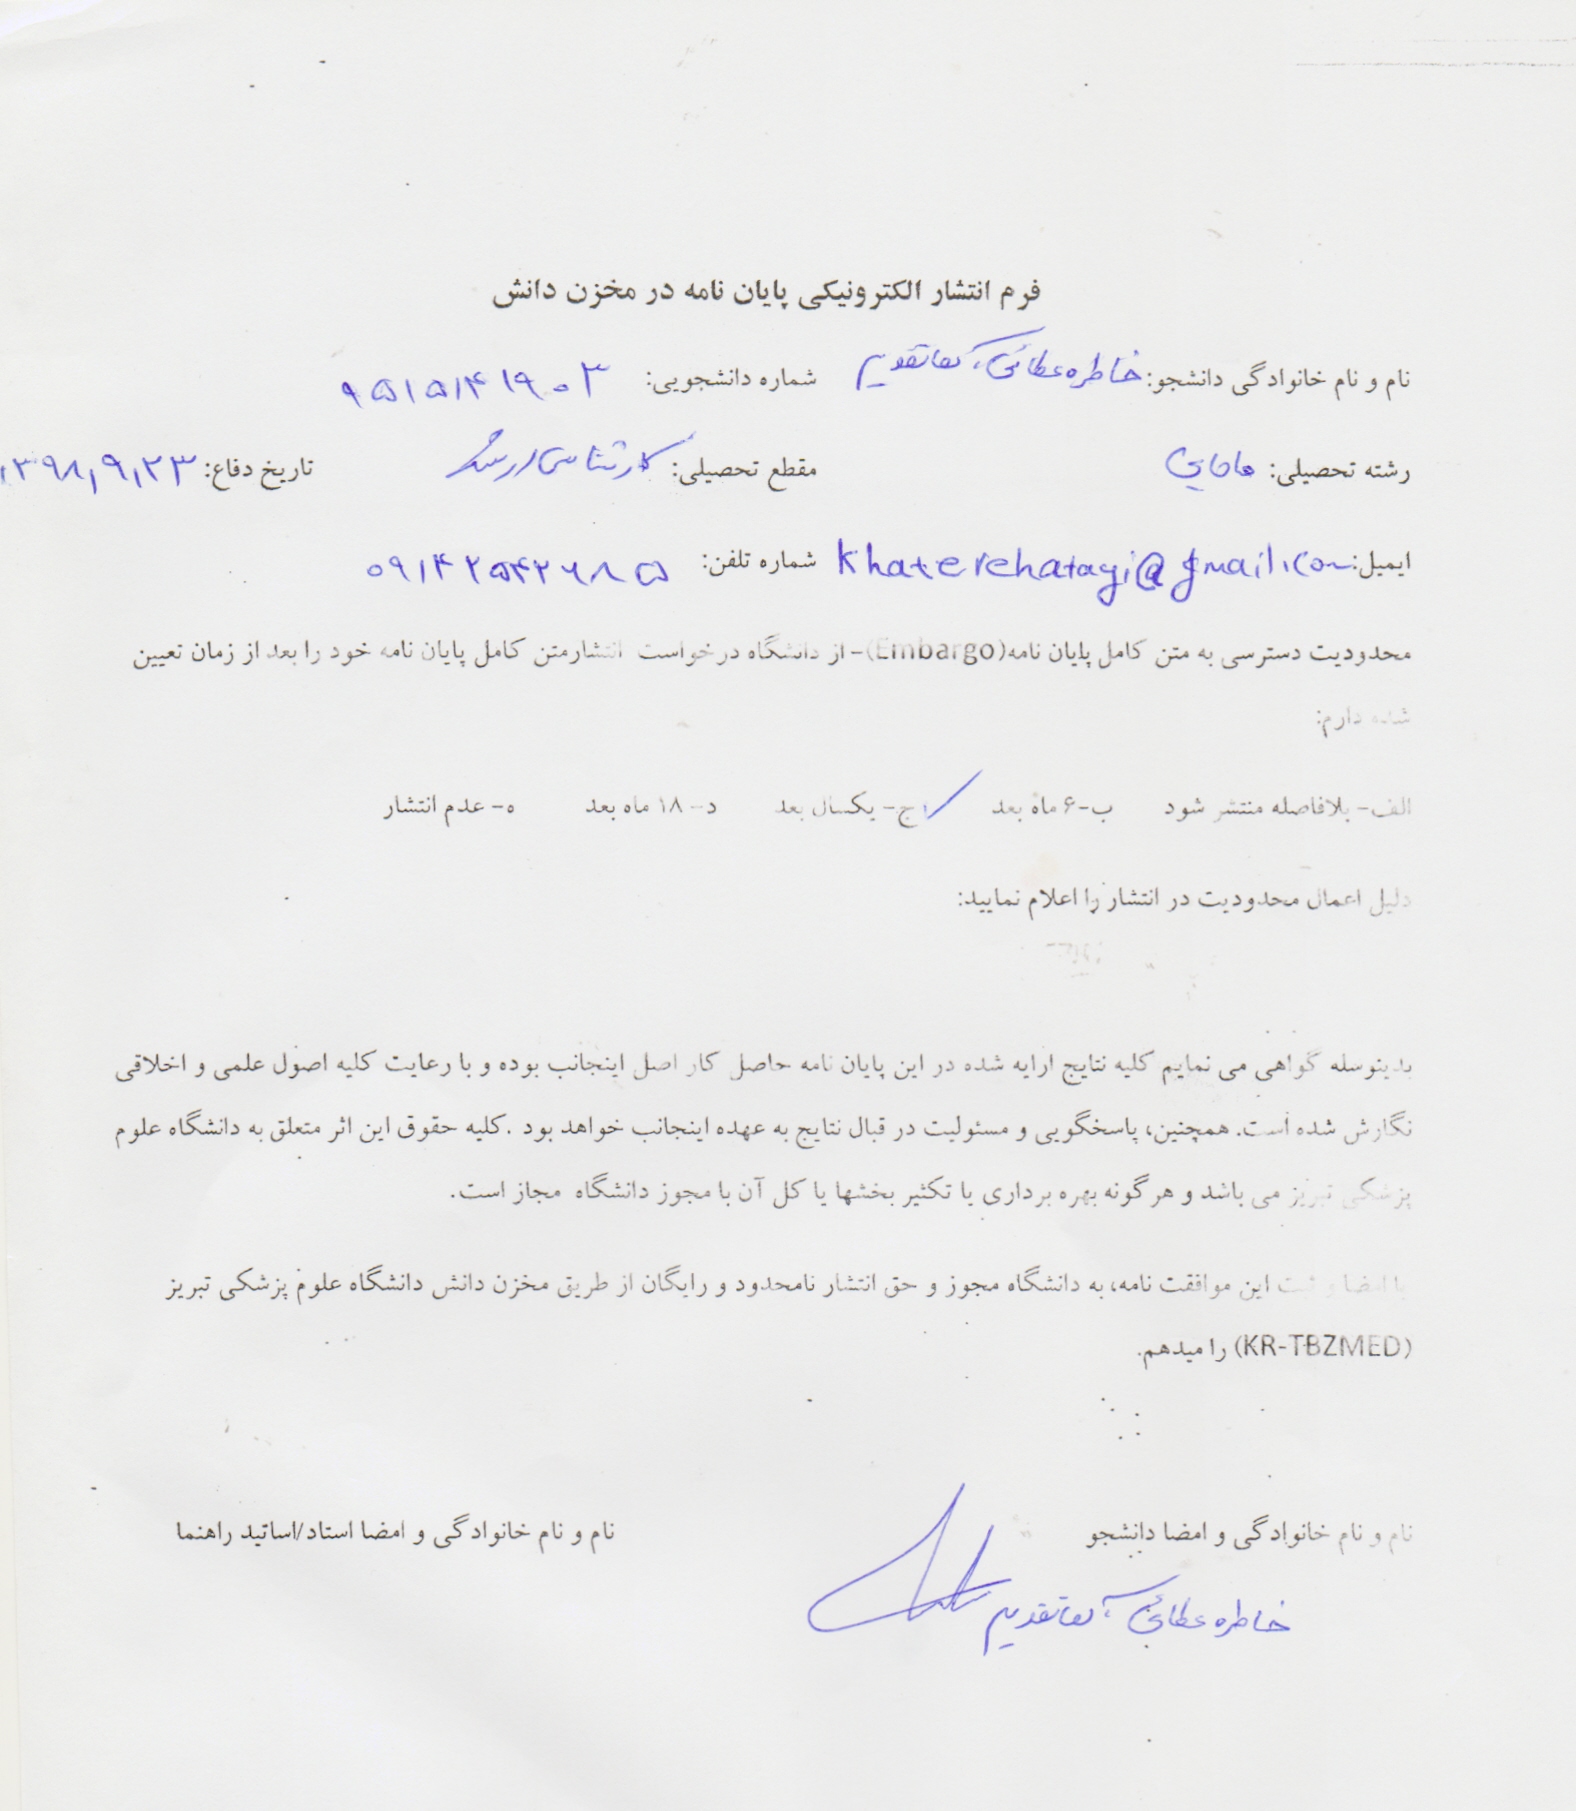 فرم انتشار الکترونیکی پایان نامه در مخزن دانش
نام و نام خانوادگی دانشجو: خاطره عطائی شماره دانشجویی: ۹۵۱۵۱۴۱۹۰۳
رشته تحصیلی: مامایی مقطع تحصیلی: کارشناسی ارشد تاریخ دفاع: ۱۳۹۸,۹,۲۳
ایمیل: khaterehatayi@gmail.com شماره تلفن: ۰۹۱۴۲۵۴۲۶۸۵
محدودیت دسترسی به متن کامل پایان نامه(Embargo)- از دانشگاه درخواست انتشارمتن کامل پایان نامه خود را بعد از زمان تعیین
شده دارم:
الف- بلافاصله منتشر شود ب-۶ ماه بعد ج- یکسال بعد د- ۱۸ ماه بعد ه- عدم انتشار
دلیل اعمال محدودیت در انتشار را اعلام نمایید:
بدینوسله گواهی می نمایم کلیه نتایج ارایه شده در این پایان نامه حاصل کار اصل اینجانب بوده و با رعایت کلیه اصول علمی و اخلاقی
نگارش شده است. همچنین، پاسخگویی و مسئولیت در قبال نتایج به عهده اینجانب خواهد بود .کلیه حقوق این اثر متعلق به دانشگاه علوم
پزشکی تبریز می باشد و هرگونه بهره برداری یا تکثیر بخشها یا کل آن با مجوز دانشگاه مجاز است.
با امضا و ثبت این موافقت نامه، به دانشگاه مجوز و حق انتشار نامحدود و رایگان از طریق مخزن دانش دانشگاه علوم پزشکی تبریز
(KR-TBZMED) را میدهم.
نام و نام خانوادگی و امضا دانشجو نام و نام خانوادگی و امضا استاد/اساتید راهنما
خاطره عطائی